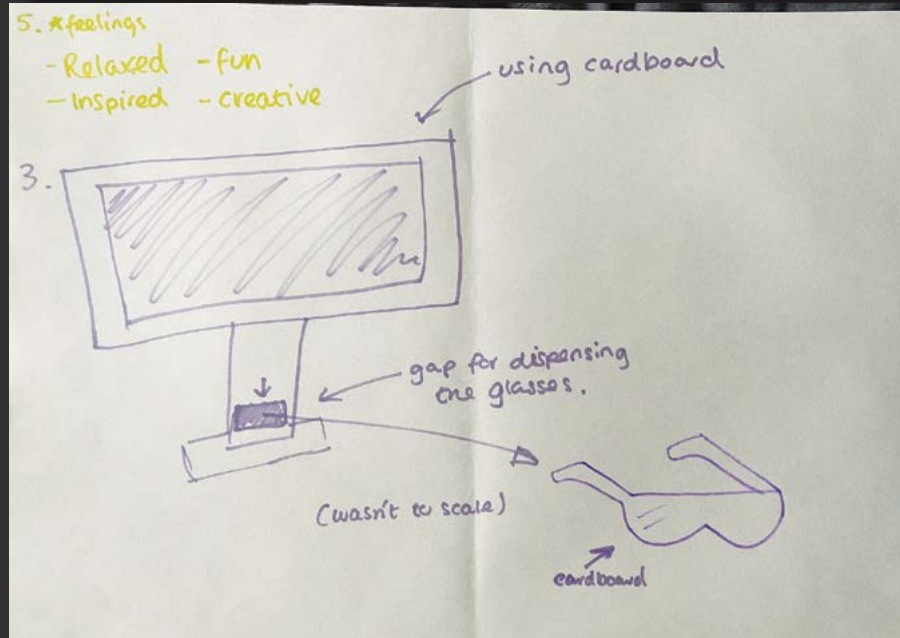 5. *feelings
- Relaxed - fun
- Inspired - creative
using cardboard
3.
gap for dispensing
the glasses.
(wasn't to scale)
cardboard